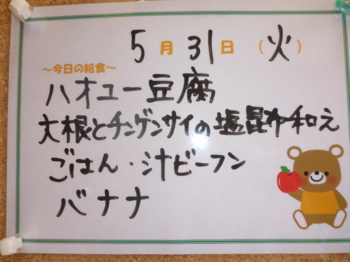 5月31日(火)
～今日の給食～
ハオユー豆腐
大根とチンゲンサイの塩昆布和え
ごはん・汁ビーフン
バナナ